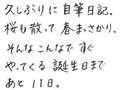 久しぶりに自筆日記。
桜も散って 春まっさかり。
そんなこんなで すぐ
やってくる 誕生日まで
あと 11日。